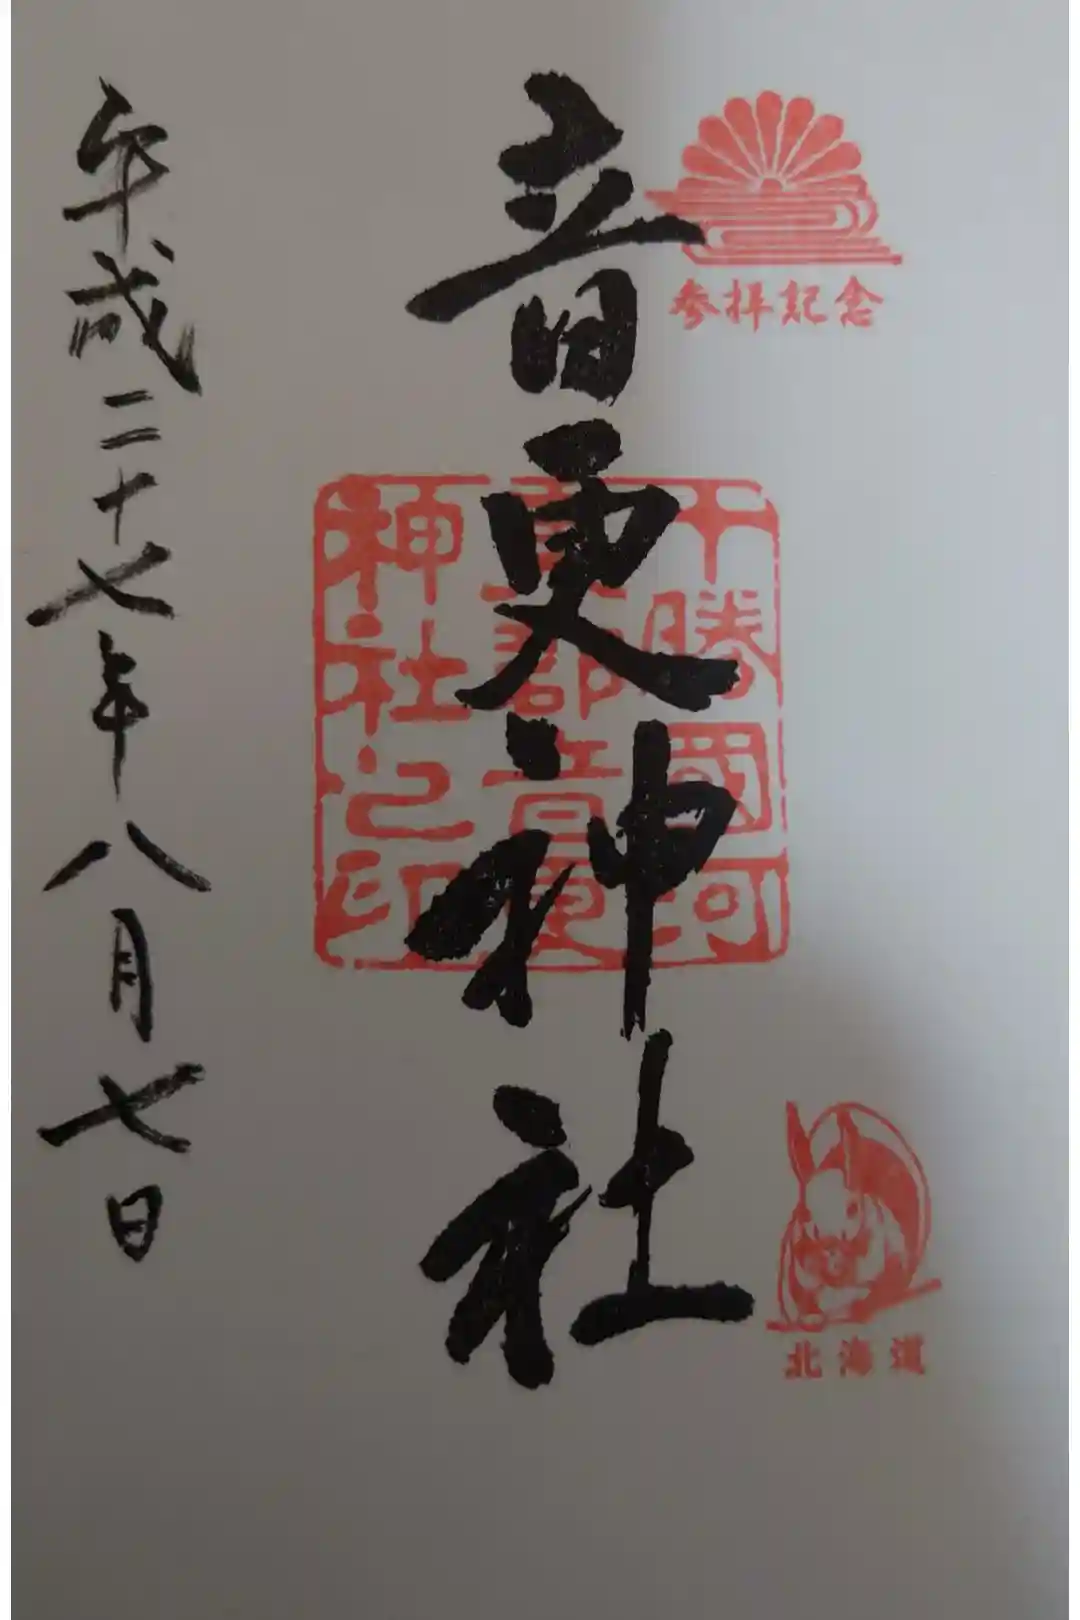 参拝記念
音更神社
十勝國河
東郡音更
神社之印
北海道
平成二十七年八月七日